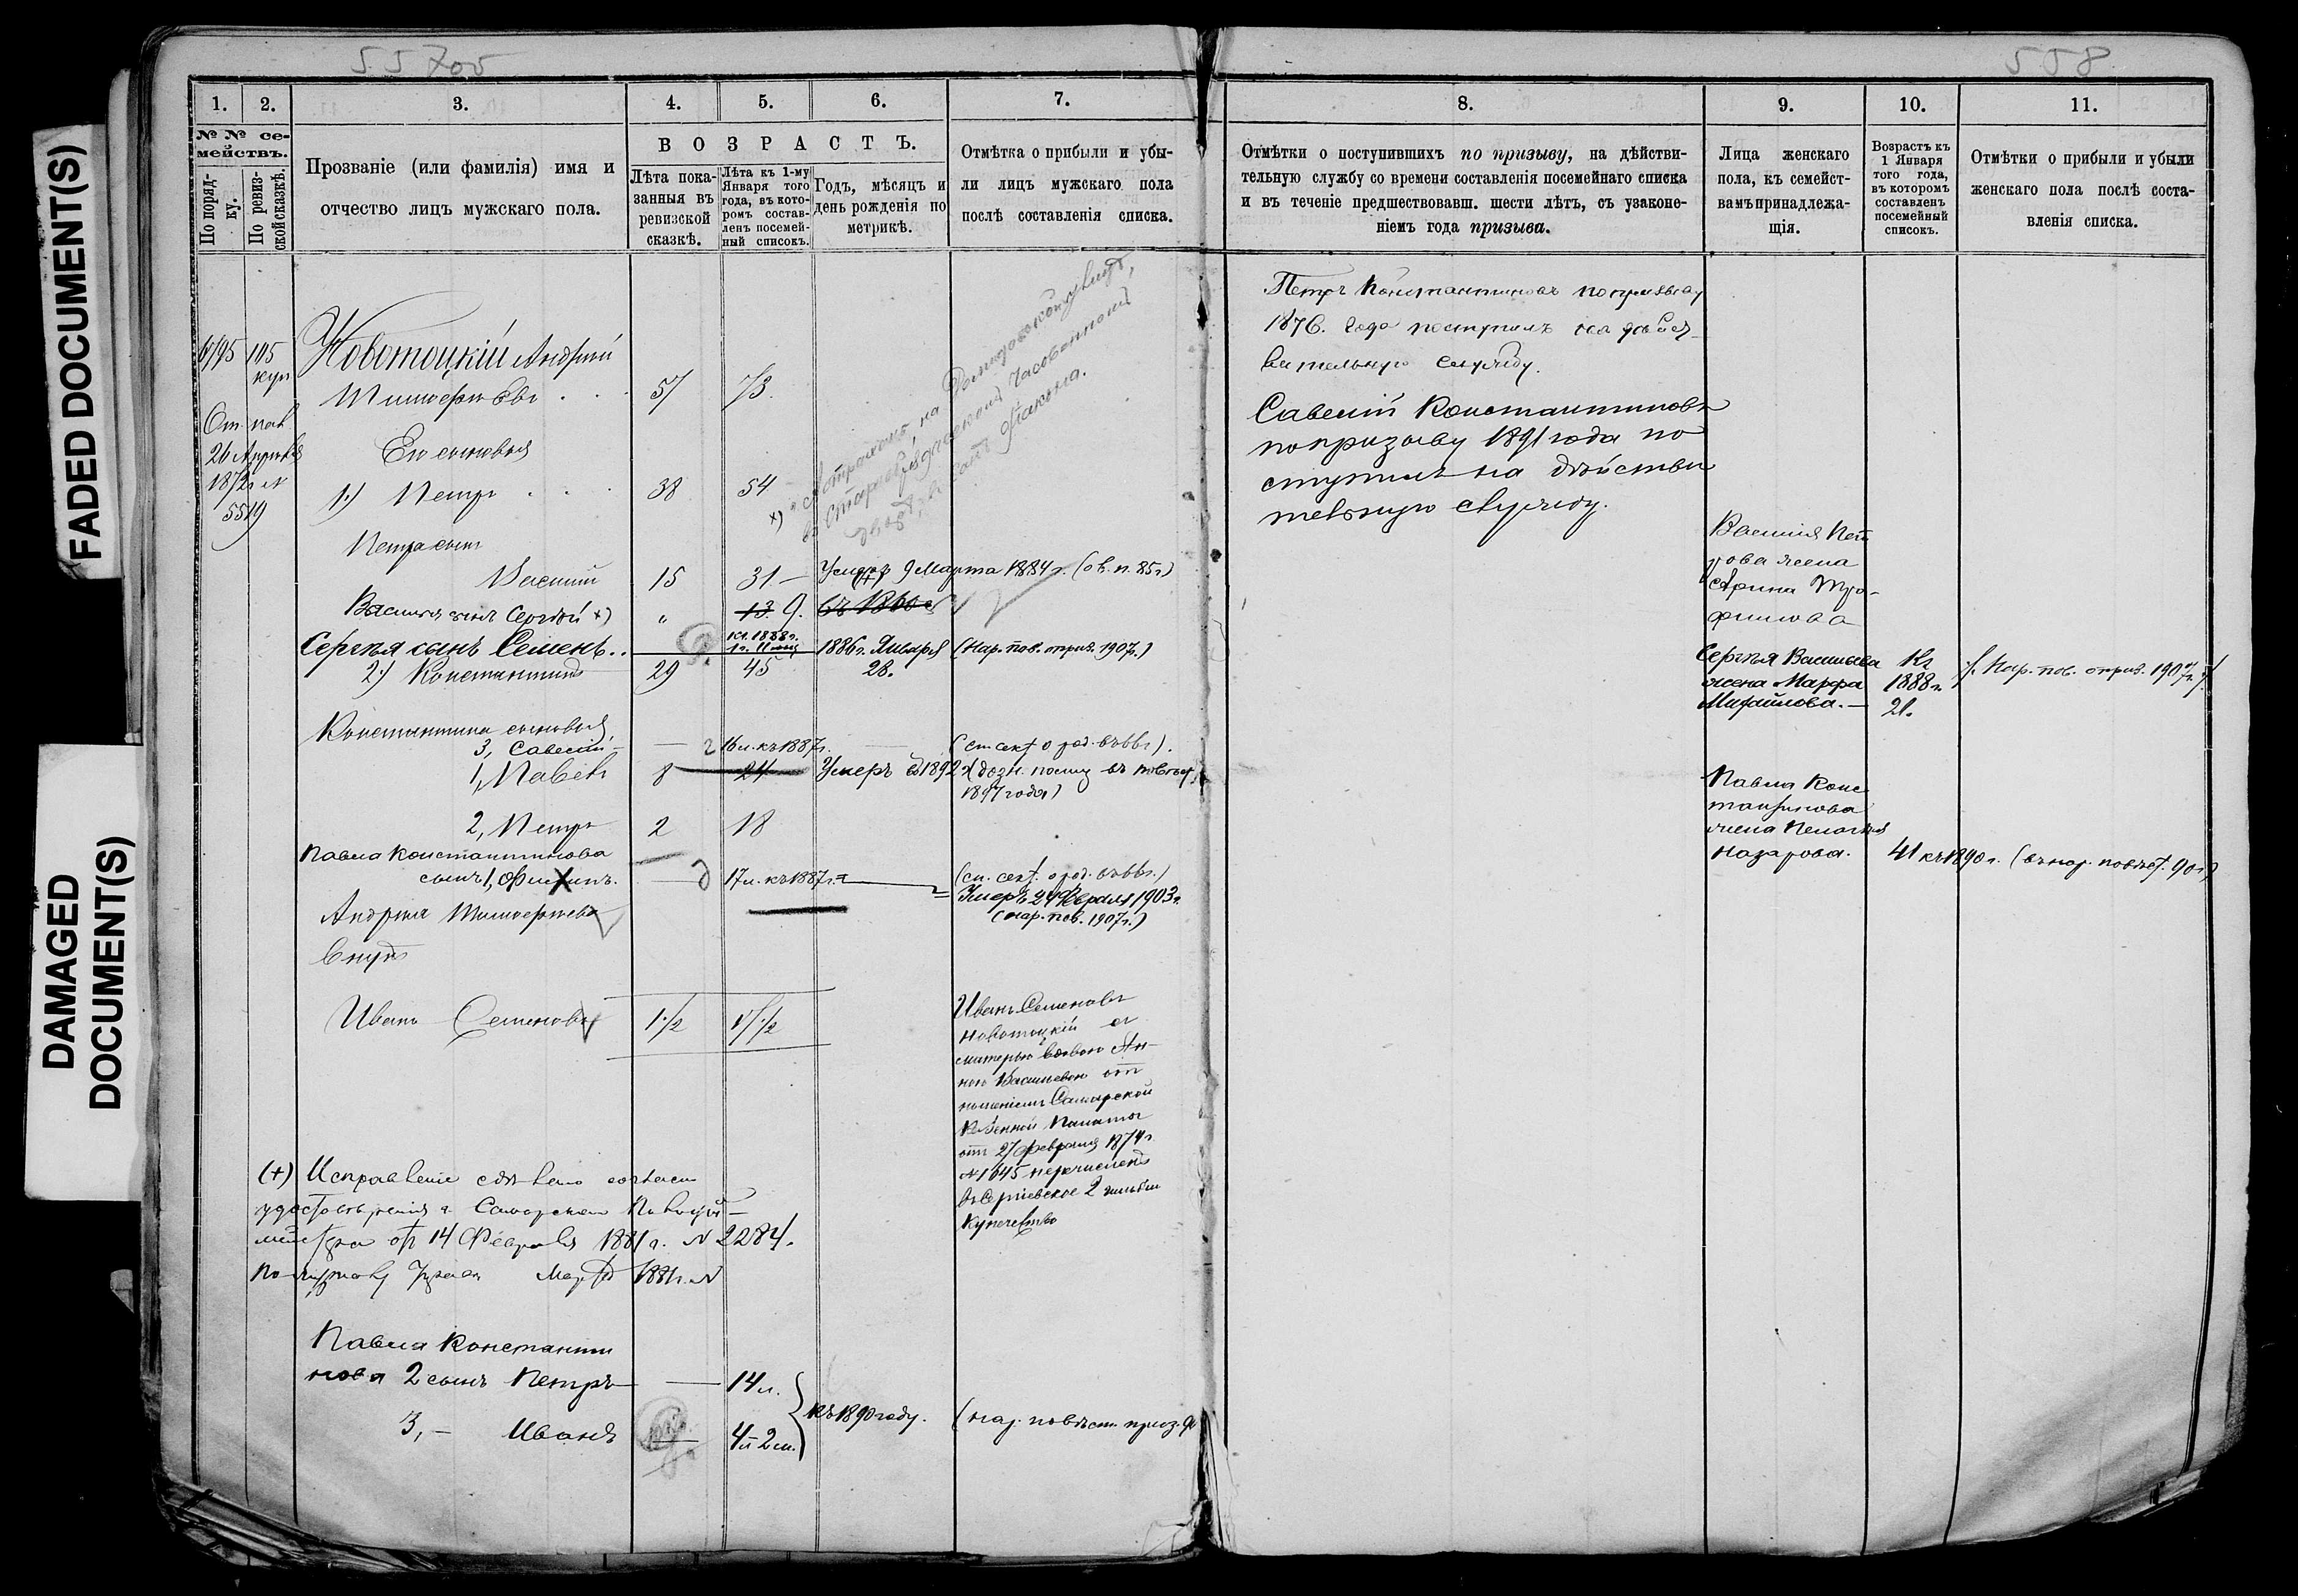 FADED DOCUMENT(S)
DAMAGED
DOCUMENT(S)
558
1.
2.
3.
4.
5.
6.
7.
№ № се-
мействъ.
По поряд-
ку.
По ревиз-
ской сказкѣ.
Прозваніе (или фамилія) имя и
отчество лицъ мужскаго пола.
ВОЗРАСТЪ.
Лѣта пока-
занныя въ
ревизской
сказкѣ.
Лѣта къ 1-му
Января того
года, въ кото-
ромъ состав-
ленъ посемей-
ный списокъ.
Годъ, мѣсяцъ и
день рожденія по
метрикѣ.
Отмѣтка о прибыли и убы-
ли лицъ мужскаго пола
послѣ составленія списка.
105
куп
Новотоцкій Андрей
Тимофѣевъ
57
73.
26 Апрѣля
1872 г №
5519
Его сыновья
1) Петръ
38
54
Петра сынъ
Василій
15
31
Умеръ 9 Марта 1884 г. (ов. п. 85 г)
Василія сынъ Сергѣй х)
"
13. 9.
Сергѣя сынъ Семенъ..
къ 1888 г.
1 г. 11 мц
1886 г. Января
28.
(Нар. пов. откр. 1907 г.)
2) Константинъ
29
45
Константина сыновья
3, Савелій
16 л. къ 1887 г.
1, Павелъ
8
24
Умеръ въ 1892 г (дозн. полиц въ
1897 года)
2, Петръ
2
18
Павла Константинова
сынъ 1, Филипъ.
17 л. къ 1887 г.
Умеръ 24 Февраля 1903 г.
(нар. пов. 1907 г.)
Андрея Тимофѣева
внукъ
Иванъ Семеновъ
1 1/2
17 1/2
Иванъ Семеновъ
Новотоцкій съ
матерью вдовою Ан-
ною Васильевою от
ношеніемъ Самарской
Казенной Палаты
отъ 27 Февраля 1874 г
№ 1045 перечисленъ
въ Сергіевское 2 гильдіи
купечество
(+) Исправленіе сдѣлано согласно
удостовѣренія г. Самарскаго Полицій-
мейстра отъ 14 Февраля 1881 г. № 2284.
Павла Константи
нова 2 сынъ Петръ
14 л.
къ 1890 году.
3, – Иванъ
4 л 2 м.
8.
9.
10.
11.
Отмѣтки о поступившихъ по призыву, на дѣйстви-
тельную службу со времени составленія посемейнаго списка
и въ теченіе предшествовавш. шести лѣтъ, съ узаконе-
ніемъ года призыва.
Лица женскаго
пола, къ семейст-
вамъ принадлежа-
щія.
Возрастъ къ
1 Января
того года,
въ которомъ
составленъ
посемейный
списокъ.
Отмѣтки о прибыли и убыли
женскаго пола послѣ соста-
вленія списка.
Петръ Константиновъ по призыву
1876. года поступилъ на дѣйст
вительную службу.
Савелій Константиновъ
по призыву 1891 года по
ступилъ на дѣйстви
тельную службу.
Василія Пет
рова жена
Арина Тро-
фимова
Сергѣя Васильева
жена Марфа
Михайлова.
Къ
1888 г.
21.
Нар. пов. откр. 1907 г.
Павла Конс
тантинова
жена Пелагея
Назарова.
41 къ 1890 г.